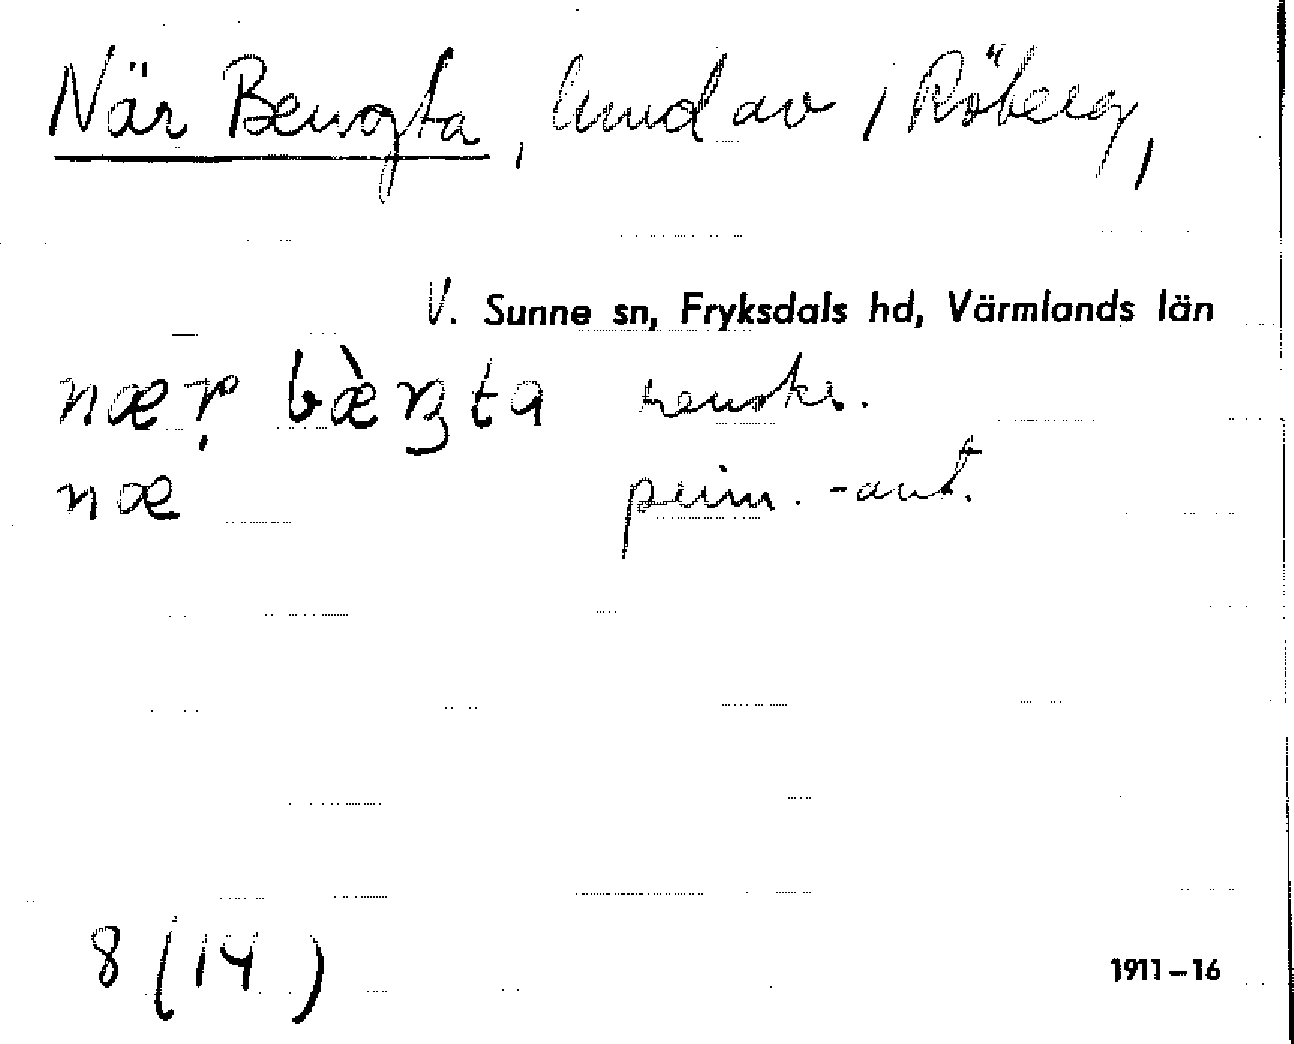 När Bengta, lund av i Röberg,
V. Sunne sn, Fryksdals hd, Värmlands län
næṛ bæ̀ŋta renskr.
næ prim. -ant.
8 (14)
1911-16